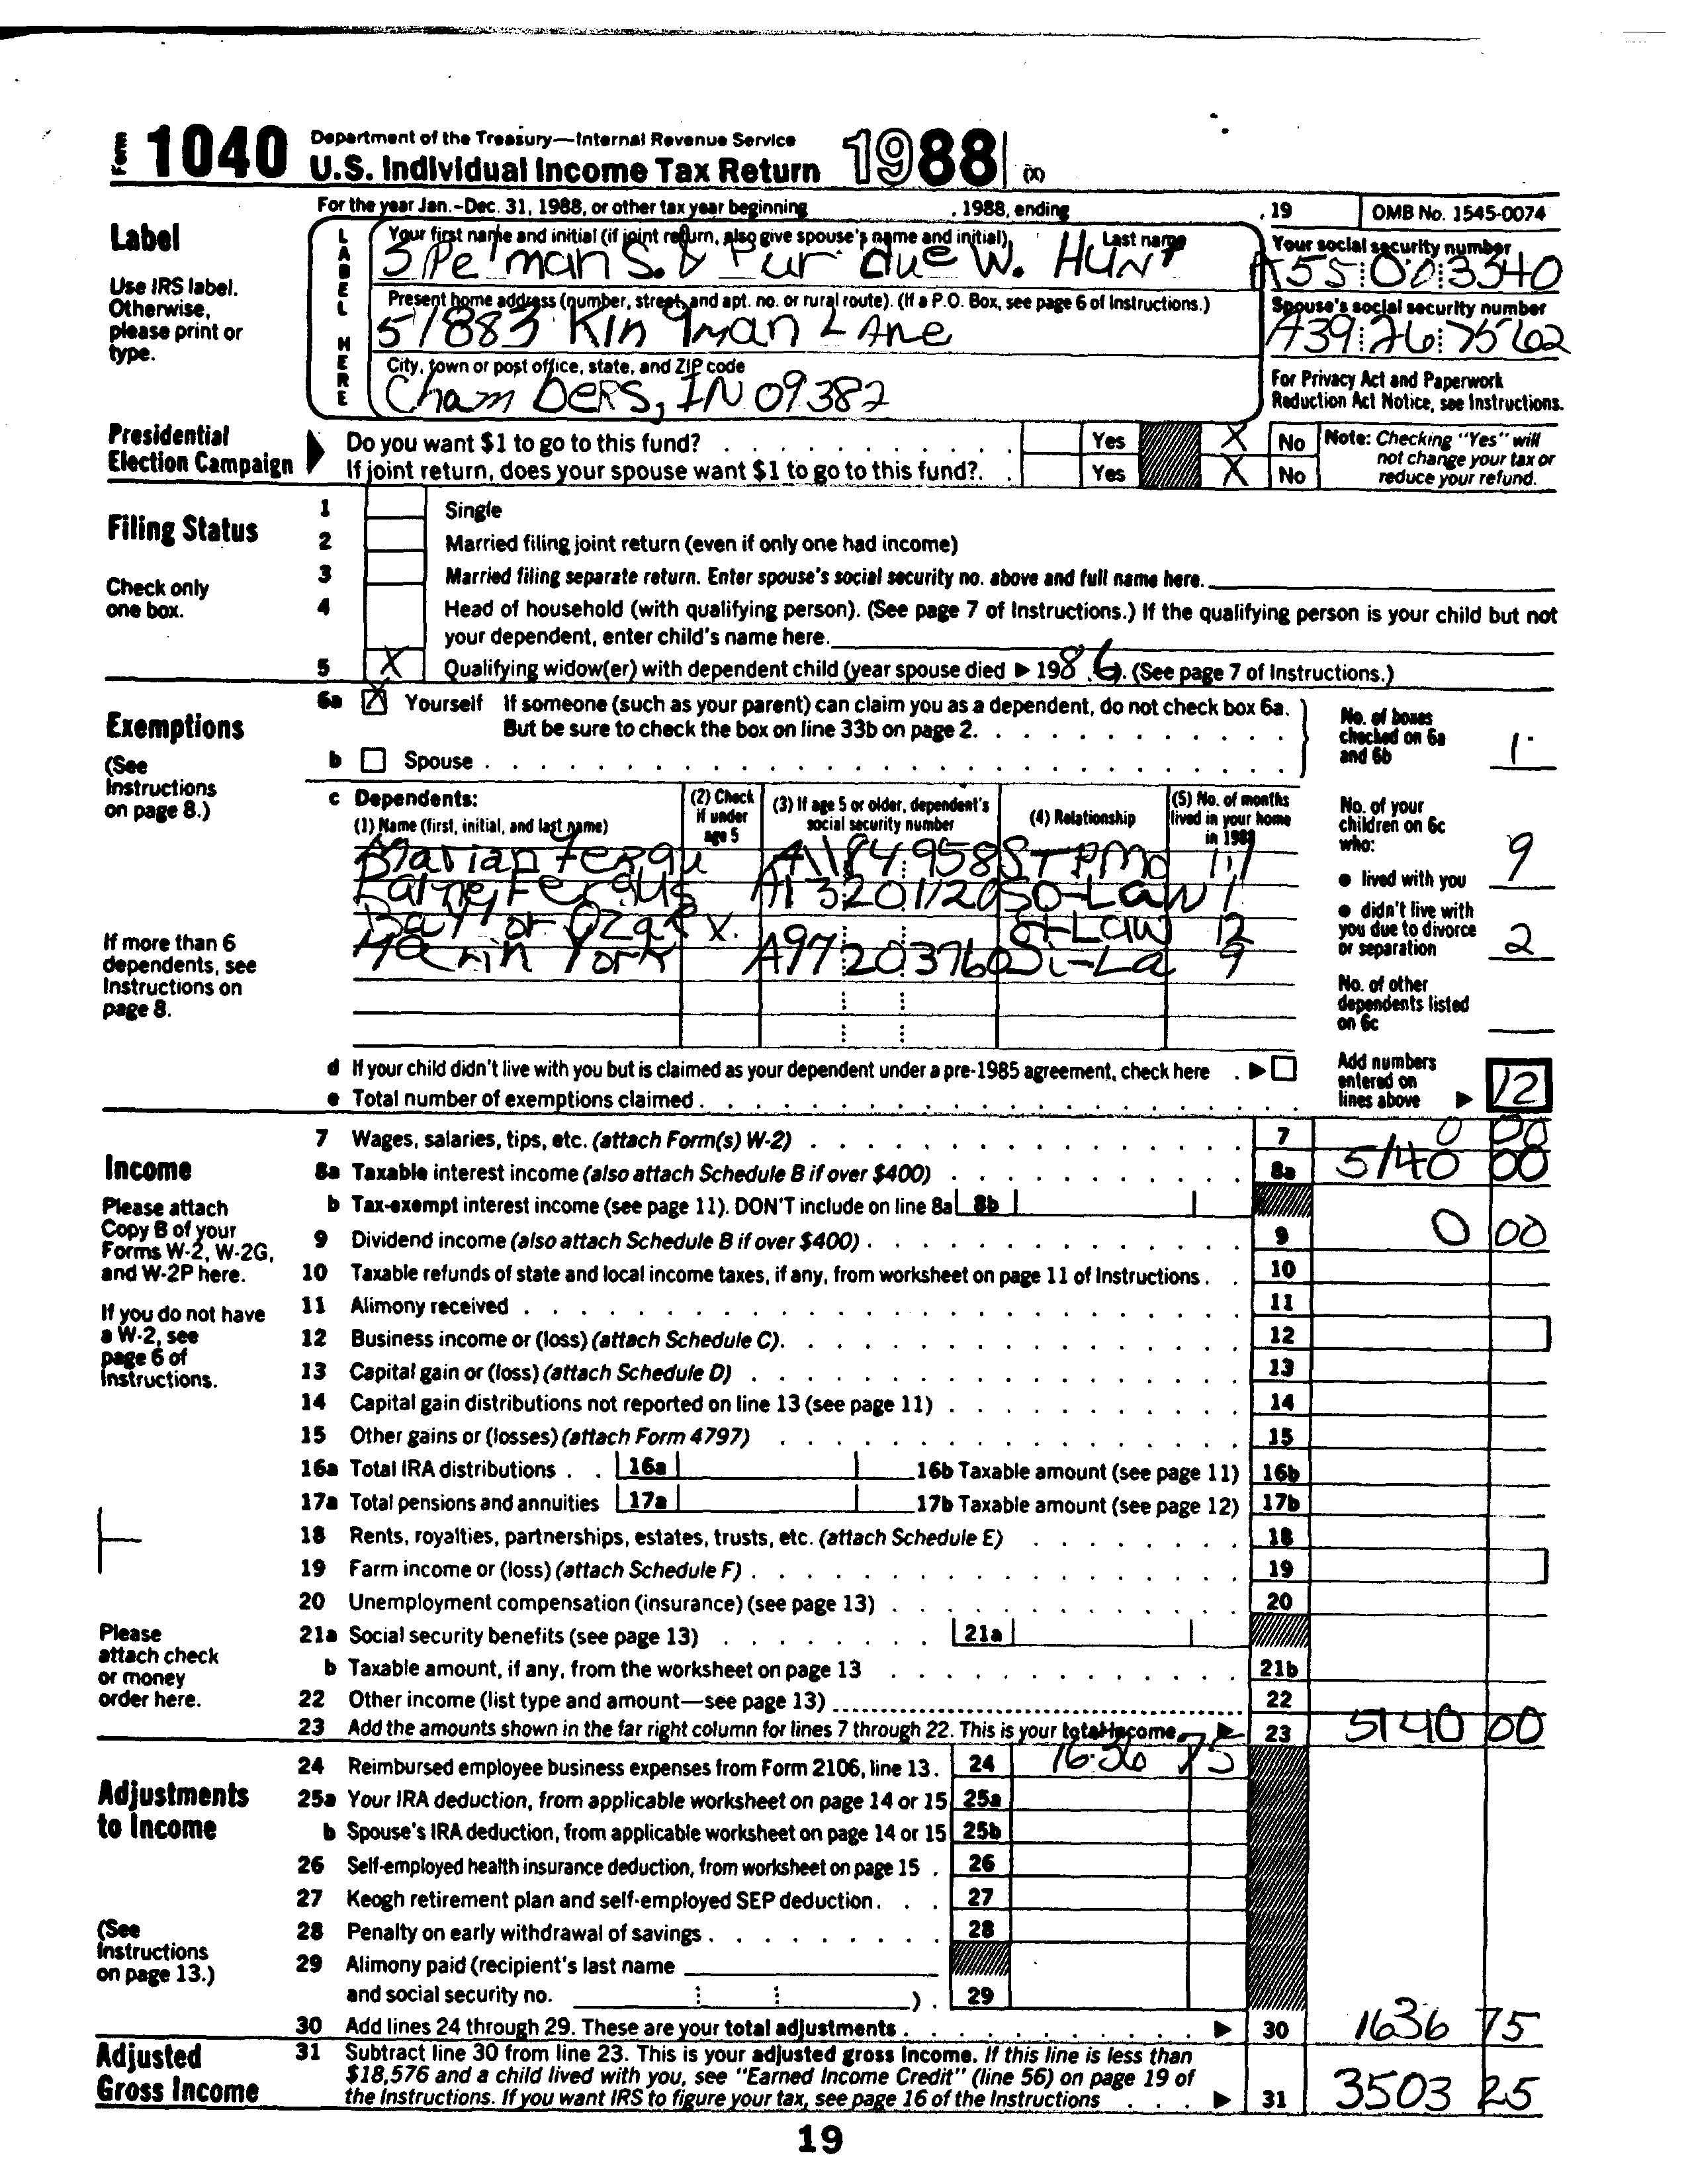 Form 1040 Department of the Treasury—Internal Revenue Service
U.S. Individual Income Tax Return 1988 (X)
For the year Jan.-Dec. 31, 1988, or other tax year beginning , 1988, ending , 19 OMB No. 1545-0074
Label
Use IRS label.
Otherwise,
please print or
type.
LABEL HERE
Your first name and initial (if joint return, also give spouse's name and initial) Last name
SPelman S. & Purdue W. HUNT
Your social security number
A55:00:3340
Present home address (number, street, and apt. no. or rural route). (If a P.O. Box, see page 6 of Instructions.)
57883 Kingman LAne
Spouse's social security number
A39:26:7562
City, town or post office, state, and ZIP code
ChamBERS, IN 09382
For Privacy Act and Paperwork
Reduction Act Notice, see Instructions.
Presidential
Election Campaign
Do you want $1 to go to this fund? Yes X No
If joint return, does your spouse want $1 to go to this fund?. Yes X No
Note: Checking "Yes" will
not change your tax or
reduce your refund.
Filing Status
Check only
one box.
1 Single
2 Married filing joint return (even if only one had income)
3 Married filing separate return. Enter spouse's social security no. above and full name here.
4 Head of household (with qualifying person). (See page 7 of Instructions.) If the qualifying person is your child but not
your dependent, enter child's name here.
5 X Qualifying widow(er) with dependent child (year spouse died ▶ 1986). (See page 7 of Instructions.)
Exemptions
(See
Instructions
on page 8.)
6a X Yourself If someone (such as your parent) can claim you as a dependent, do not check box 6a.
But be sure to check the box on line 33b on page 2.
b Spouse
No. of boxes
checked on 6a
and 6b 1
c Dependents:
(1) Name (first, initial, and last name)
(2) Check
if under
age 5
(3) If age 5 or older, dependent's
social security number
(4) Relationship
(5) No. of months
lived in your home
in 1988
Marian Fergu A11 84 958 STPMo 11
Fergus A13 20 112 SO-LAW 1
Baylor Ozark X. St-LAW 12
York A97 20 3760 Si-La 9
If more than 6
dependents, see
Instructions on
page 8.
No. of your
children on 6c
who:
● lived with you 9
● didn't live with
you due to divorce
or separation 2
No. of other
dependents listed
on 6c
d If your child didn't live with you but is claimed as your dependent under a pre-1985 agreement, check here ▶
e Total number of exemptions claimed
Add numbers
entered on
lines above ▶ 12
Income
Please attach
Copy B of your
Forms W-2, W-2G,
and W-2P here.
If you do not have
a W-2, see
page 6 of
Instructions.
Please
attach check
or money
order here.
7 Wages, salaries, tips, etc. (attach Form(s) W-2) 7 0 00
8a Taxable interest income (also attach Schedule B if over $400) 8a 5140 00
b Tax-exempt interest income (see page 11). DON'T include on line 8a 8b
9 Dividend income (also attach Schedule B if over $400) 9 0 00
10 Taxable refunds of state and local income taxes, if any, from worksheet on page 11 of Instructions 10
11 Alimony received 11
12 Business income or (loss) (attach Schedule C). 12
13 Capital gain or (loss) (attach Schedule D) 13
14 Capital gain distributions not reported on line 13 (see page 11) 14
15 Other gains or (losses) (attach Form 4797) 15
16a Total IRA distributions 16a 16b Taxable amount (see page 11) 16b
17a Total pensions and annuities 17a 17b Taxable amount (see page 12) 17b
18 Rents, royalties, partnerships, estates, trusts, etc. (attach Schedule E) 18
19 Farm income or (loss) (attach Schedule F) 19
20 Unemployment compensation (insurance) (see page 13) 20
21a Social security benefits (see page 13) 21a
b Taxable amount, if any, from the worksheet on page 13 21b
22 Other income (list type and amount—see page 13) 22
23 Add the amounts shown in the far right column for lines 7 through 22. This is your total income ▶ 23 5140 00
Adjustments
to Income
(See
Instructions
on page 13.)
24 Reimbursed employee business expenses from Form 2106, line 13. 24 1636 75
25a Your IRA deduction, from applicable worksheet on page 14 or 15 25a
b Spouse's IRA deduction, from applicable worksheet on page 14 or 15 25b
26 Self-employed health insurance deduction, from worksheet on page 15 26
27 Keogh retirement plan and self-employed SEP deduction 27
28 Penalty on early withdrawal of savings 28
29 Alimony paid (recipient's last name
and social security no. ) 29
30 Add lines 24 through 29. These are your total adjustments ▶ 30 1636 75
Adjusted
Gross Income
31 Subtract line 30 from line 23. This is your adjusted gross income. If this line is less than
$18,576 and a child lived with you, see "Earned Income Credit" (line 56) on page 19 of
the Instructions. If you want IRS to figure your tax, see page 16 of the Instructions ▶ 31 3503 25
19